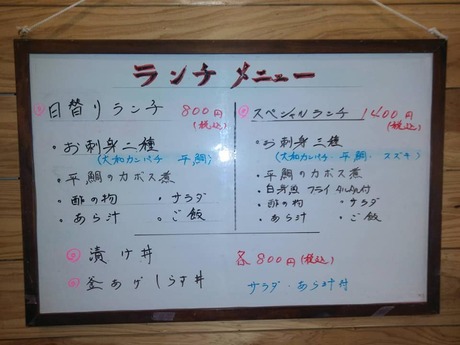 ランチ メニュー
日替りランチ 800円
(税込)
・お刺身二種
(大和カンパチ 平鯛)
・平鯛のカボス煮
・酢の物 ・サラダ
・あら汁 ・ご飯
スペシャルランチ 1400円
(税込)
・お刺身三種
(大和カンパチ・平鯛・スズキ)
・平鯛のカボス煮
・白身魚フライ タルタル付
・酢の物 ・サラダ
・あら汁 ・ご飯
漬け丼 各800円(税込)
釜あげしらす丼 サラダ・あら汁付